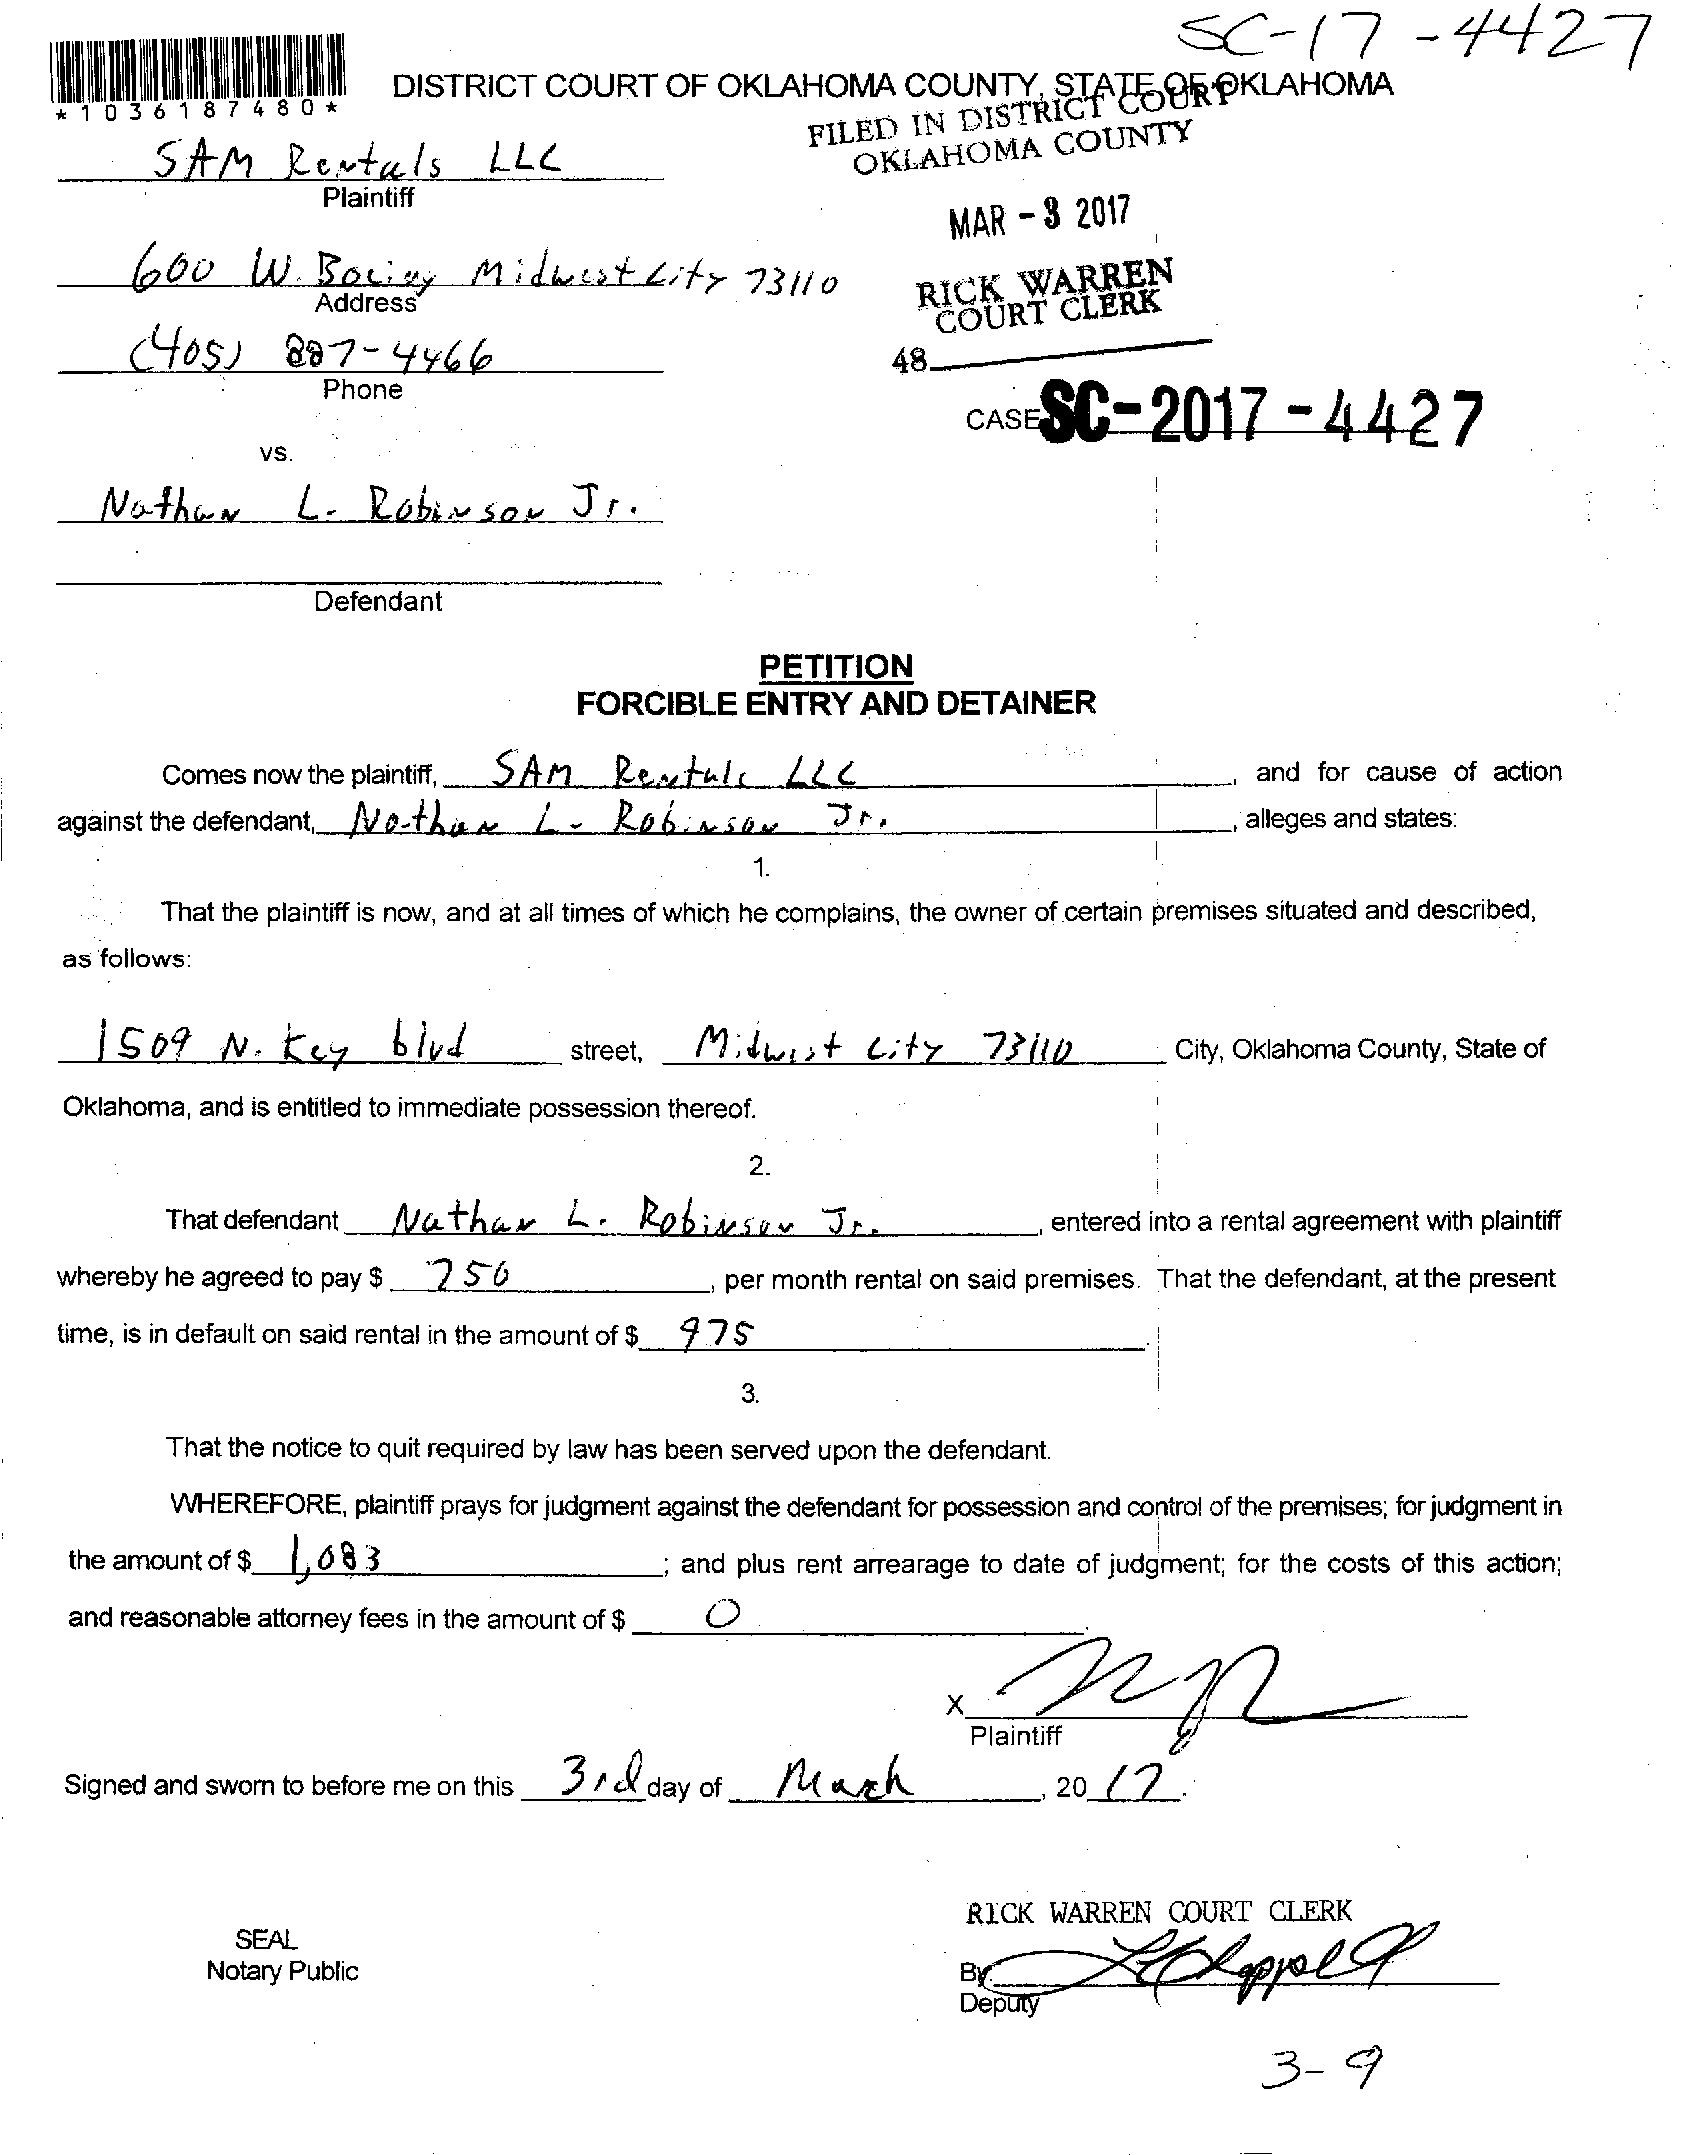 SC-17-4427
*1036187480*
DISTRICT COURT OF OKLAHOMA COUNTY, STATE OF OKLAHOMA
FILED IN DISTRICT COURT
OKLAHOMA COUNTY
SAM Rentals LLC
Plaintiff
MAR - 3 2017
600 W. Boeing Midwest City 73110
Address
RICK WARREN
COURT CLERK
(405) 887-4466
Phone
48
CASE SC-2017-4427
vs.
Nathan L. Robinson Jr.
Defendant
PETITION
FORCIBLE ENTRY AND DETAINER
Comes now the plaintiff, SAM Rentals LLC, and for cause of action
against the defendant, Nathan L. Robinson Jr., alleges and states:
1.
That the plaintiff is now, and at all times of which he complains, the owner of certain premises situated and described,
as follows:
1509 N. Key blvd street, Midwest City 73110 City, Oklahoma County, State of
Oklahoma, and is entitled to immediate possession thereof.
2.
That defendant Nathan L. Robinson Jr., entered into a rental agreement with plaintiff
whereby he agreed to pay $ 750, per month rental on said premises. That the defendant, at the present
time, is in default on said rental in the amount of $ 975.
3.
That the notice to quit required by law has been served upon the defendant.
WHEREFORE, plaintiff prays for judgment against the defendant for possession and control of the premises; for judgment in
the amount of $ 1,083; and plus rent arrearage to date of judgment; for the costs of this action;
and reasonable attorney fees in the amount of $ 0.
X
Plaintiff
Signed and sworn to before me on this 3rd day of March, 2017.
RICK WARREN COURT CLERK
SEAL
Notary Public
By:
Deputy
3-9